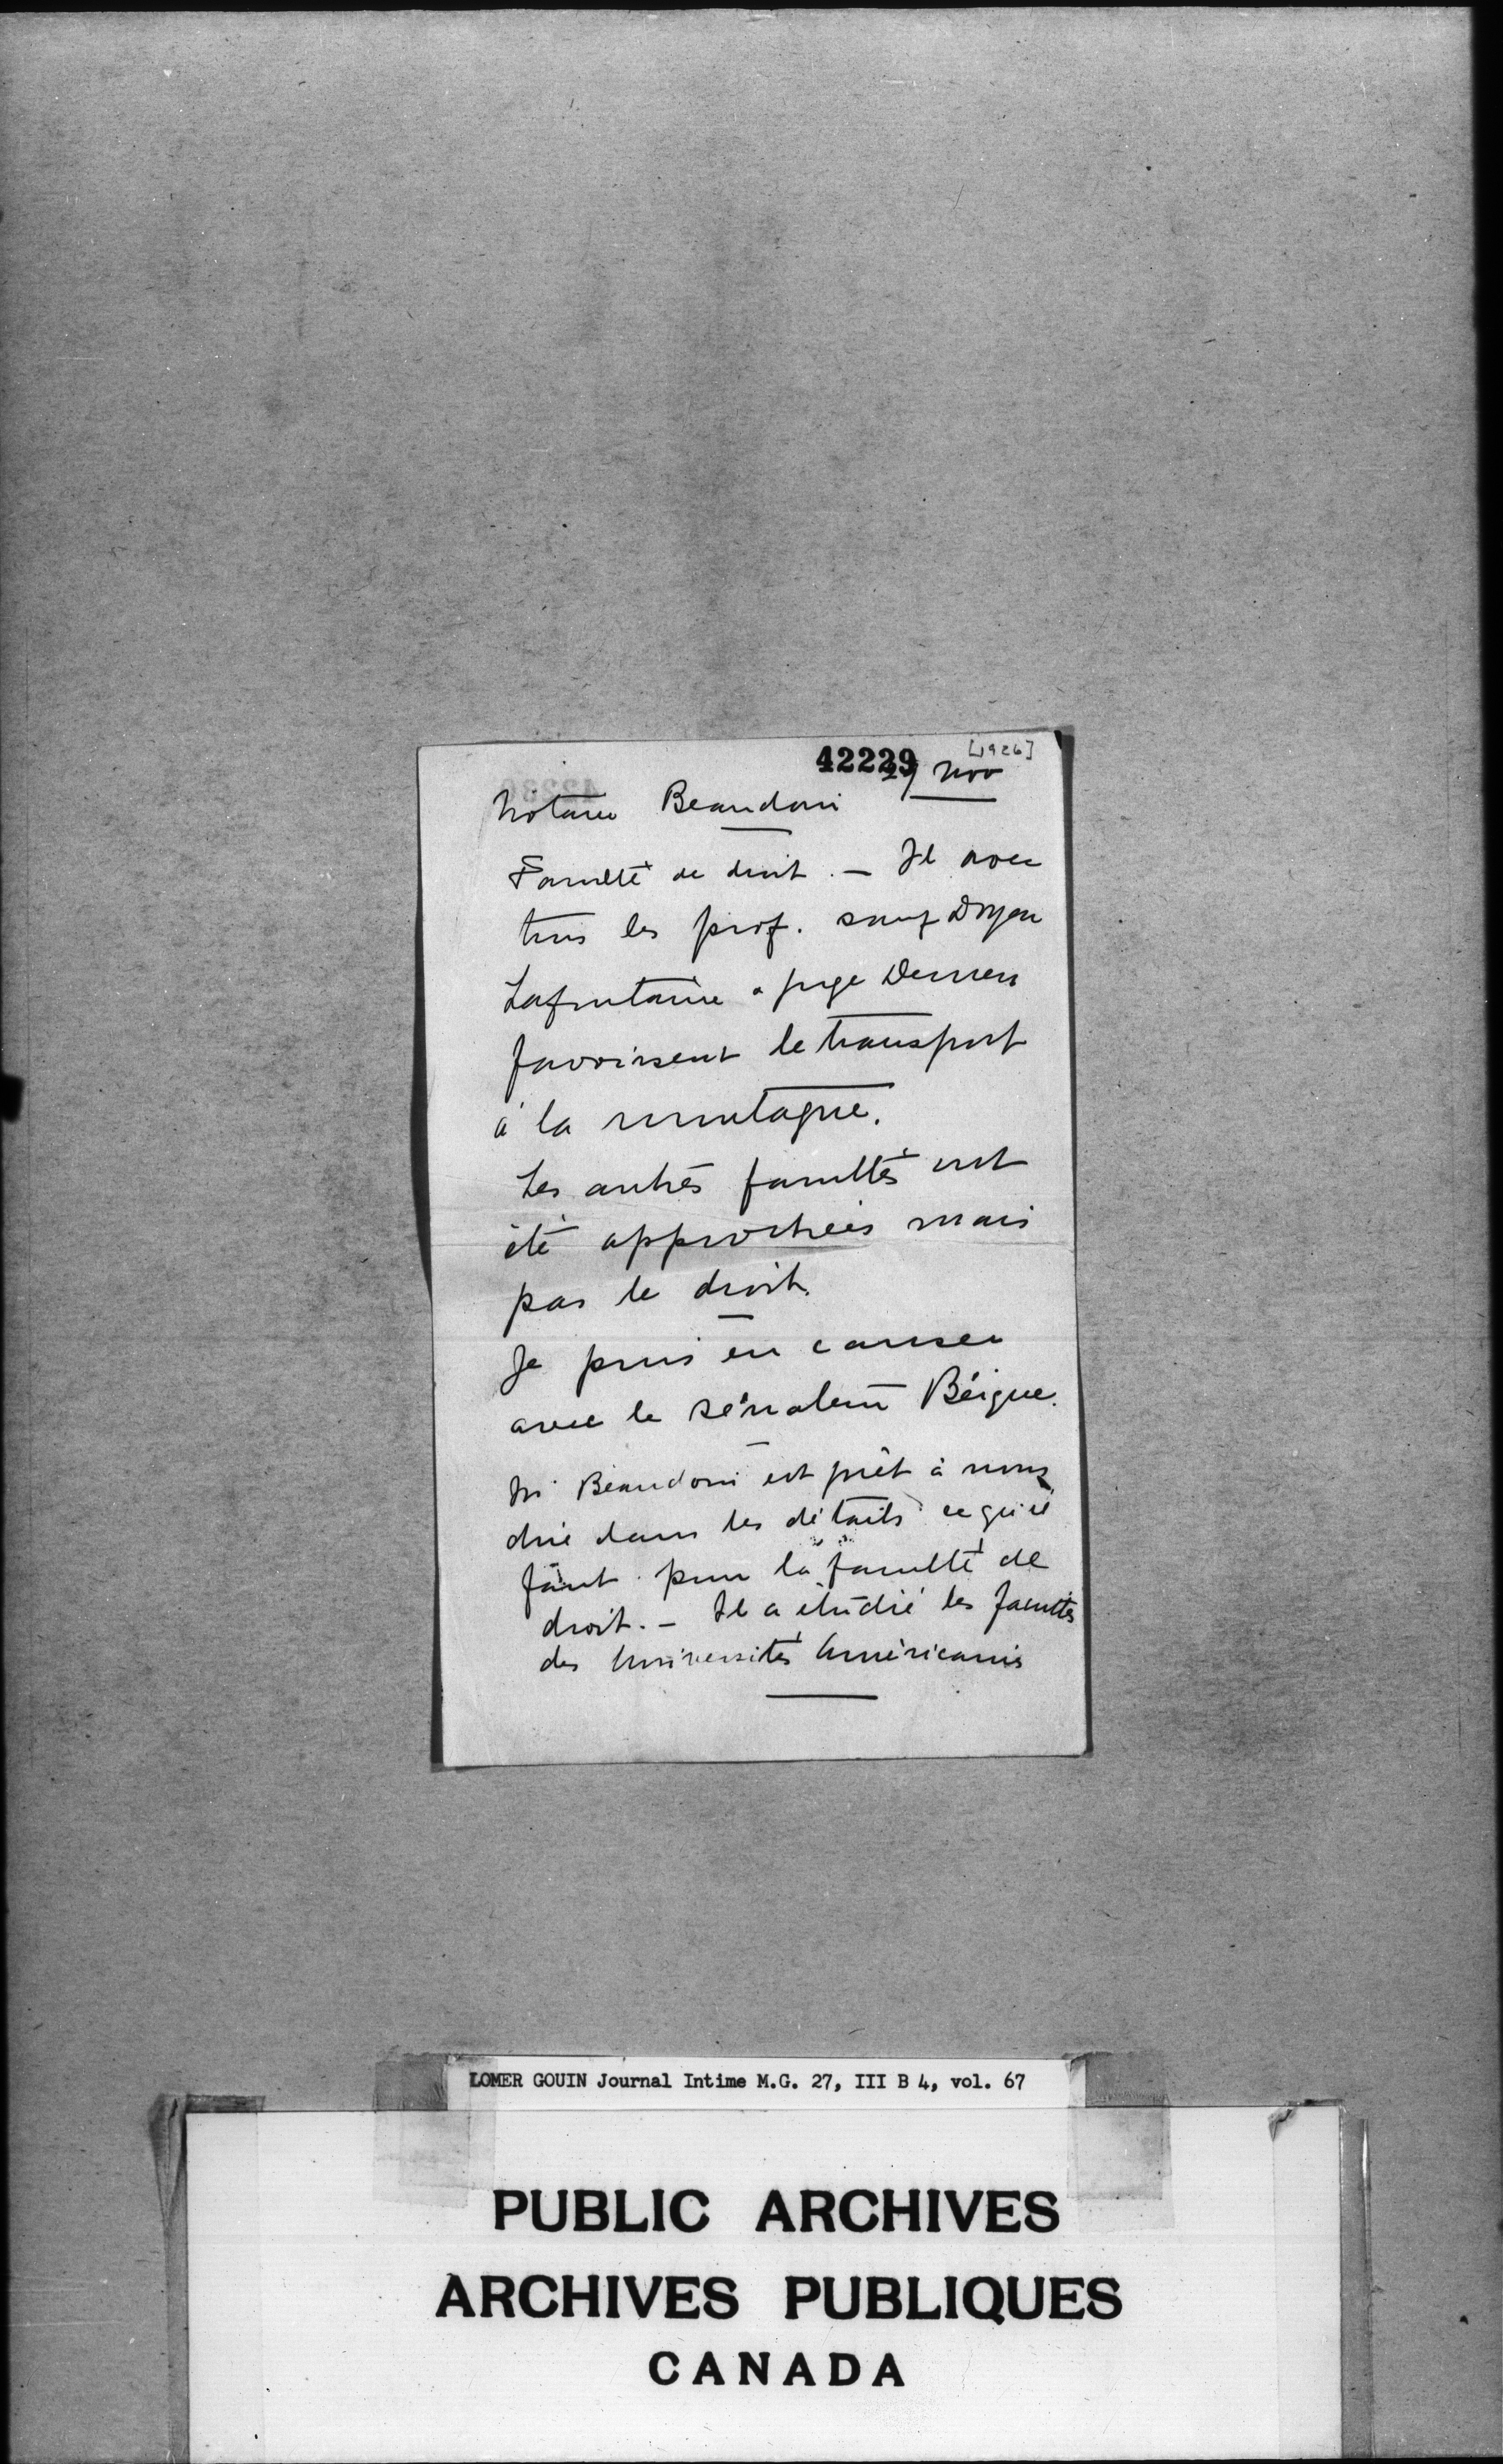 42229
[1926]
29 Nov
Notaire Beaudoin
Faculté de droit. — Il avec
tous les prof. sauf Doyen
Lafontaine & juge Demers
favorisent le transport
à la montagne.
Les autres facultés ont
été approchées mais
pas le droit.
Je puis en causer
avec le sénateur Béique.
M Beaudoin est prêt à nous
dire dans les détails ce qu'il
faut pour la faculté de
droit. — Il a étudié les facultés
des Universités Américaines
LOMER GOUIN Journal Intime M.G. 27, III B 4, vol. 67
PUBLIC ARCHIVES
ARCHIVES PUBLIQUES
CANADA